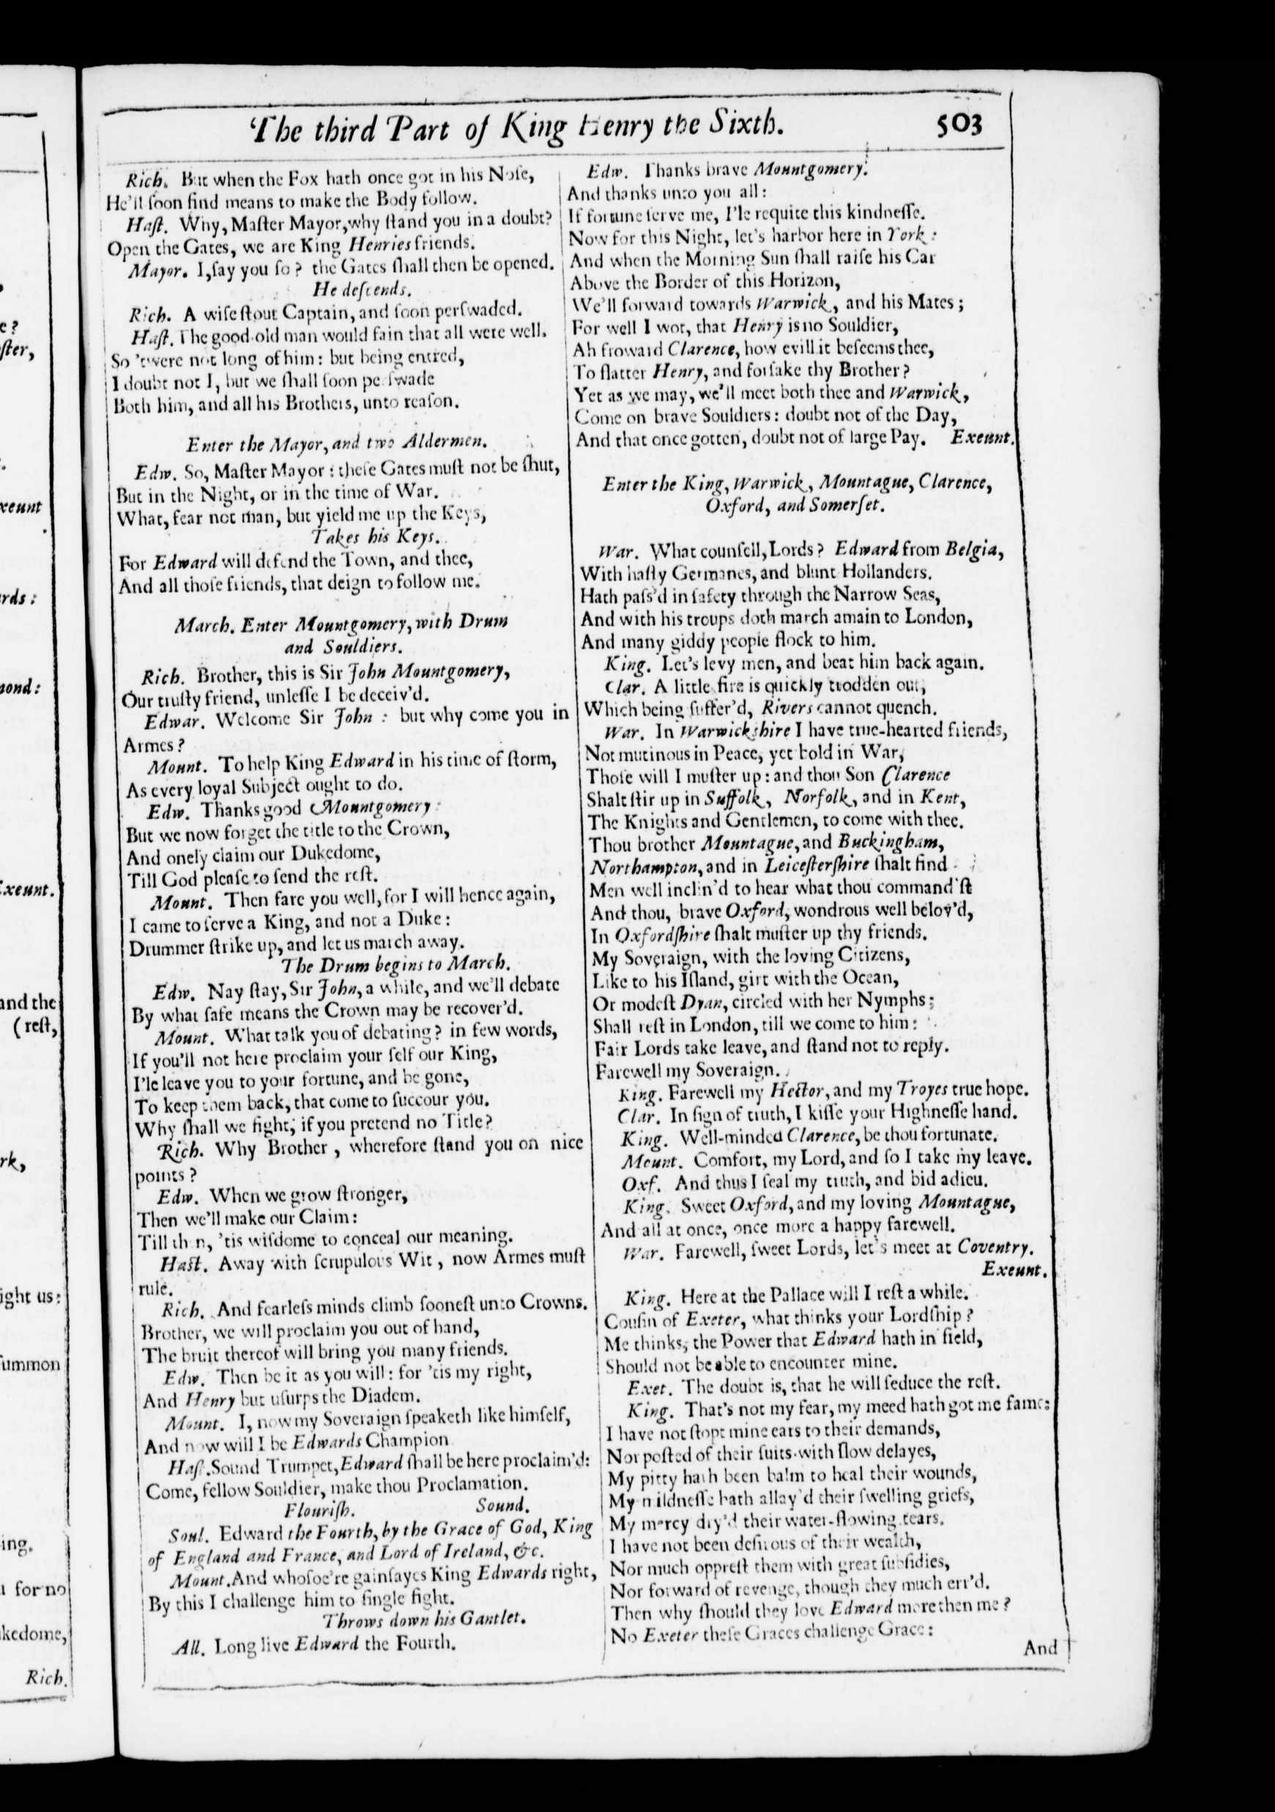 The third Part of King Henry the Sixth. 503
Rich. But when the Fox hath once got in his Nose,
He'll soon find means to make the Body follow.
Hast. Why, Master Mayor, why stand you in a doubt?
Open the Gates, we are King Henries friends.
Mayor. I, say you so? the Gates shall then be opened.
He descends.
Rich. A wise stout Captain, and soon perswaded.
Hast. The good old man would fain that all were well.
So 'twere not long of him: but being entred,
I doubt not I, but we shall soon perswade
Both him, and all his Brothers, unto reason.
Enter the Mayor, and two Aldermen.
Edw. So, Master Mayor: these Gates must not be shut,
But in the Night, or in the time of War.
What, fear not man, but yield me up the Keys,
Takes his Keys.
For Edward will defend the Town, and thee,
And all those friends, that deign to follow me.
March. Enter Mountgomery, with Drum
and Souldiers.
Rich. Brother, this is Sir John Mountgomery,
Our trusty friend, unlesse I be deceiv'd.
Edwar. Welcome Sir John: but why come you in
Armes?
Mount. To help King Edward in his time of storm,
As every loyal Subject ought to do.
Edw. Thanks good Mountgomery:
But we now forget the title to the Crown,
And onely claim our Dukedome,
Till God please to send the rest.
Mount. Then fare you well, for I will hence again,
I came to serve a King, and not a Duke:
Drummer strike up, and let us march away.
The Drum begins to March.
Edw. Nay stay, Sir John, a while, and we'll debate
By what safe means the Crown may be recover'd.
Mount. What talk you of debating? in few words,
If you'll not here proclaim your self our King,
I'le leave you to your fortune, and be gone,
To keep them back, that come to succour you.
Why shall we fight, if you pretend no Title?
Rich. Why Brother, wherefore stand you on nice
points?
Edw. When we grow stronger,
Then we'll make our Claim:
Till then, 'tis wisdome to conceal our meaning.
Hast. Away with scrupulous Wit, now Armes must
rule.
Rich. And fearless minds climb soonest unto Crowns.
Brother, we will proclaim you out of hand,
The bruit thereof will bring you many friends.
Edw. Then be it as you will: for 'tis my right,
And Henry but usurps the Diadem.
Mount. I, now my Soveraign speaketh like himself,
And now will I be Edwards Champion
Hast. Sound Trumpet, Edward shall be here proclaim'd:
Come, fellow Souldier, make thou Proclamation.
Flourish. Sound.
Soul. Edward the Fourth, by the Grace of God, King
of England and France, and Lord of Ireland, &c.
Mount. And whosoe're gainsayes King Edwards right,
By this I challenge him to single fight.
Throws down his Gantlet.
All. Long live Edward the Fourth.
Edw. Thanks brave Mountgomery:
And thanks unto you all:
If fortune serve me, I'le requite this kindnesse.
Now for this Night, let's harbor here in York:
And when the Morning Sun shall raise his Car
Above the Border of this Horizon,
We'll forward towards Warwick, and his Mates;
For well I wot, that Henry is no Souldier,
Ah froward Clarence, how evill it beseems thee,
To flatter Henry, and forsake thy Brother?
Yet as we may, we'll meet both thee and Warwick,
Come on brave Souldiers: doubt not of the Day,
And that once gotten, doubt not of large Pay. Exeunt.
Enter the King, Warwick, Mountague, Clarence,
Oxford, and Somerset.
War. What counsell, Lords? Edward from Belgia,
With hasty Germanes, and blunt Hollanders.
Hath pass'd in safety through the Narrow Seas,
And with his troups doth march amain to London,
And many giddy people flock to him.
King. Let's levy men, and beat him back again.
Clar. A little fire is quickly trodden out,
Which being suffer'd, Rivers cannot quench.
War. In Warwickshire I have true-hearted friends,
Not mutinous in Peace, yet bold in War,
Those will I muster up: and thou Son Clarence
Shalt stir up in Suffolk, Norfolk, and in Kent,
The Knights and Gentlemen, to come with thee.
Thou brother Mountague, and Buckingham,
Northampton, and in Leicestershire shalt find
Men well inclin'd to hear what thou command'st
And thou, brave Oxford, wondrous well belov'd,
In Oxfordshire shalt muster up thy friends.
My Soveraign, with the loving Citizens,
Like to his Island, girt with the Ocean,
Or modest Dyan, circled with her Nymphs;
Shall rest in London, till we come to him:
Fair Lords take leave, and stand not to reply.
Farewell my Soveraign.
King. Farewell my Hector, and my Troyes true hope.
Clar. In sign of truth, I kisse your Highnesse hand.
King. Well-minded Clarence, be thou fortunate.
Mount. Comfort, my Lord, and so I take my leave.
Oxf. And thus I seal my truth, and bid adieu.
King. Sweet Oxford, and my loving Mountague,
And all at once, once more a happy farewell.
War. Farewell, sweet Lords, let's meet at Coventry.
Exeunt.
King. Here at the Pallace will I rest a while.
Cousin of Exeter, what thinks your Lordship?
Me thinks, the Power that Edward hath in field,
Should not be able to encounter mine.
Exet. The doubt is, that he will seduce the rest.
King. That's not my fear, my meed hath got me fame:
I have not stopt mine ears to their demands,
Nor posted of their suits with slow delayes,
My pitty hath been balm to heal their wounds,
My mildnesse hath allay'd their swelling griefs,
My mercy dry'd their water-flowing tears.
I have not been desirous of their wealth,
Nor much opprest them with great subsidies,
Nor forward of revenge, though they much err'd.
Then why should they love Edward more then me?
No Exeter these Graces challenge Grace:
And